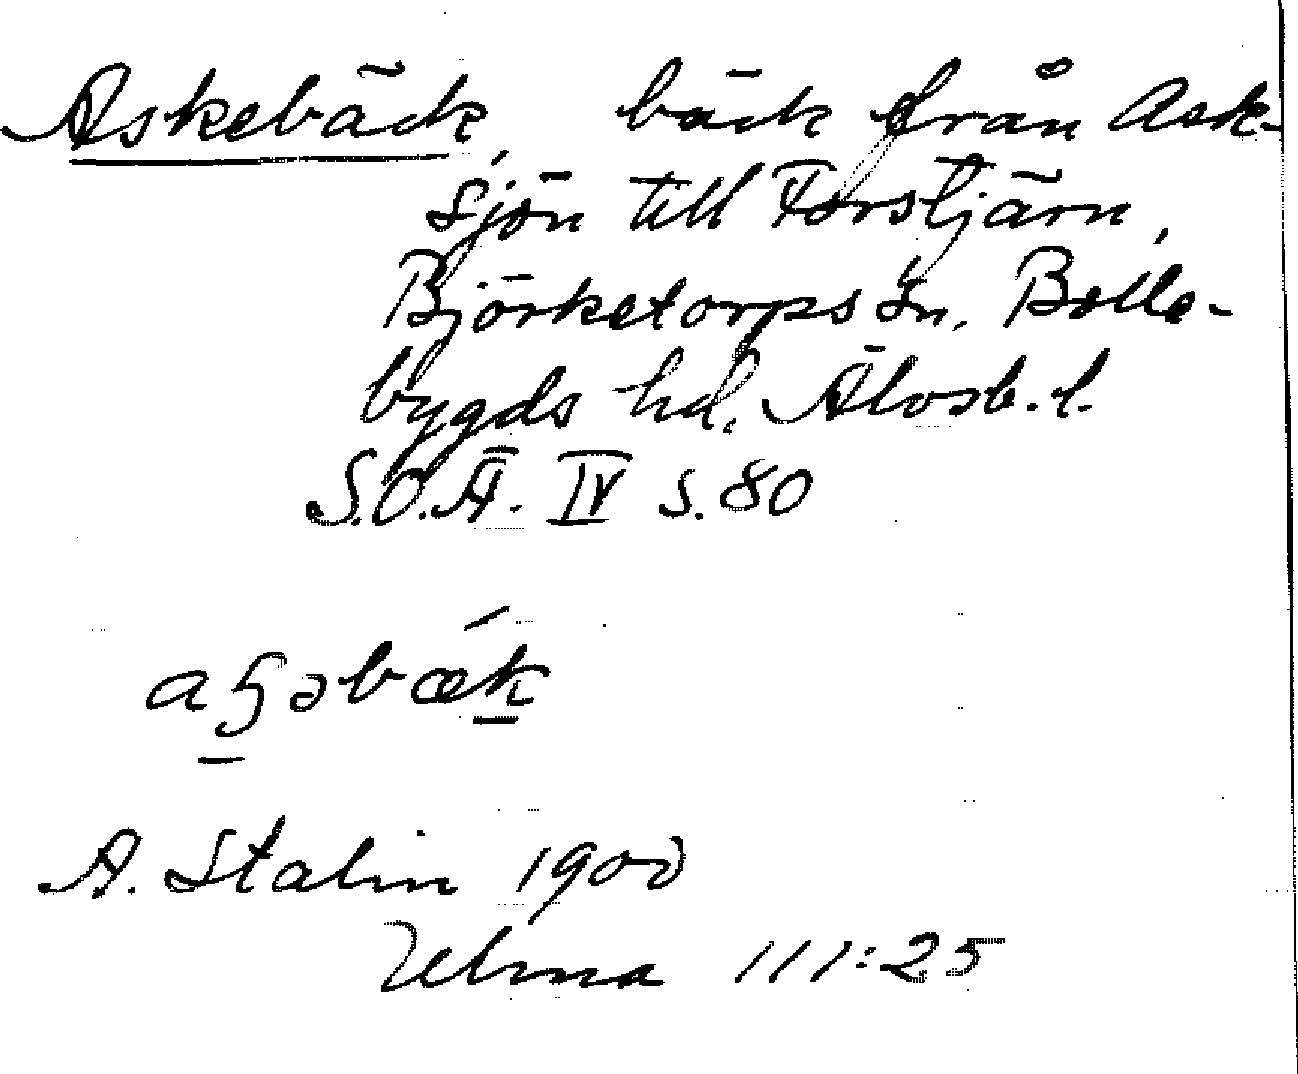 Askebäck, bäck från Ask-
sjön till Forstjärn,
Björketorps sn, Bolle-
bygds hd, Älvsb. l.
S.O.Ä. IV s. 80
A. Stalin 1900
Ulma 111:25